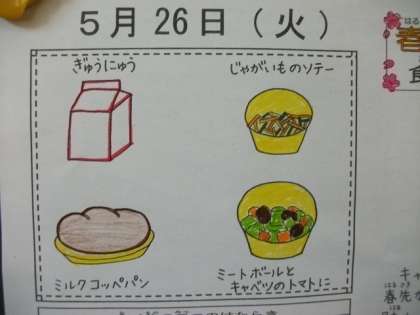 5月26日(火)
ぎゅうにゅう
じゃがいものソテー
ミルクコッペパン
ミートボールと
キャベツのトマトに
はる
春
食
キャ
はるさき
春先